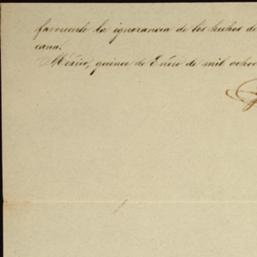 favorecerle la ignorancia de los hechos de
cana.
México, quince de Enero de mil ocho